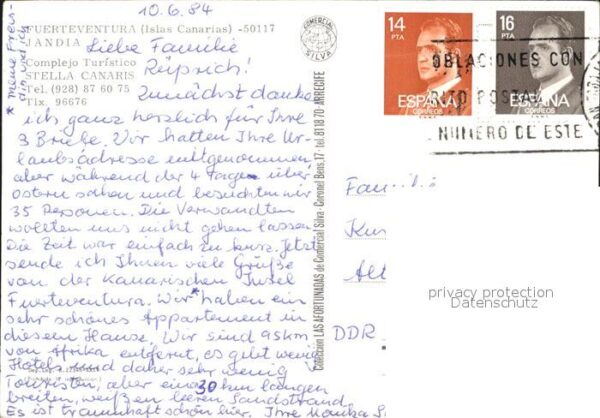 10.6.84
FUERTEVENTURA (Islas Canarias) -50117
JANDIA
Complejo Turístico
STELLA CANARIS
Tel. (928) 87 60 75
Tlx. 96676
* meine Freundin und ich
Liebe Familie
Reipsich!
Zunächst danke
ich ganz herzlich für Ihre
3 Briefe. Wir hatten Ihre Ur-
laubsadresse mitgenommen
aber während der 4 Tage über
Ostern sahen und besuchten wir
35 Personen. Die Verwandten
wollten uns nicht gehen lassen
Die Zeit war einfach zu kurz. Jetzt
sende ich Ihnen viele Grüße
von der Kanarischen Insel
Fuerteventura. Wir* haben ein
sehr schönes Appartement in
diesem Hause. Wir sind 95 km
von Afrika entfernt, es gibt wenig
Hotels und daher sehr wenig
Touristen, aber einen 30 km langen
breiten, weißen leeren Sandstrand
Es ist traumhaft schön hier. Ihre Monika S
COMERCIAL
SILVA
Colección LAS AFORTUNADAS de Comercial Silva - Coronel Bens, 17 - tel. 81 18 70 ARRECIFE
14
PTA
ESPAÑA
CORREOS
16
PTA
ESPAÑA
CORREOS
OBLACIONES CON
RITO POSTAL
NUMERO DE ESTE
Familie
Kus
Alt
DDR
privacy protection
Datenschutz